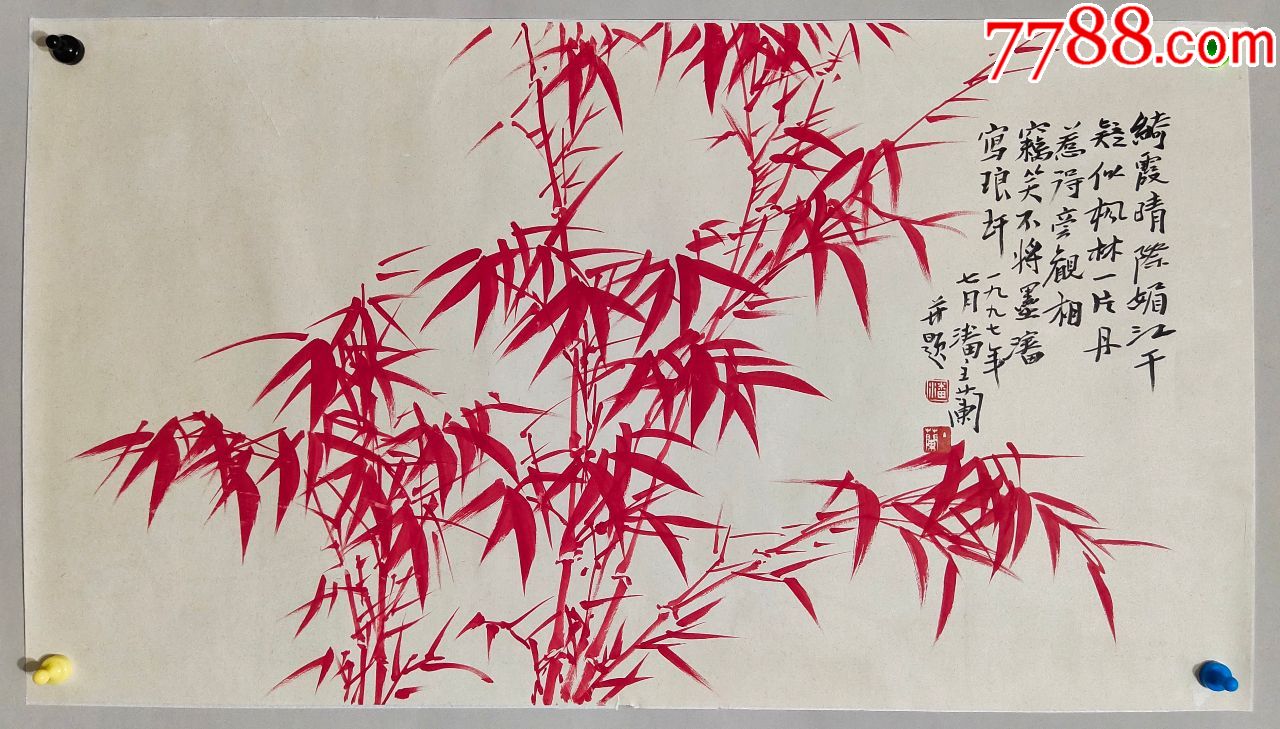 7788.com
綺霞晴際媚江干
疑似楓林一片丹
惹得旁觀相
竊笑不將墨瀋
寫琅玕 一九九七年
七月潘主蘭
并題
潘
蘭